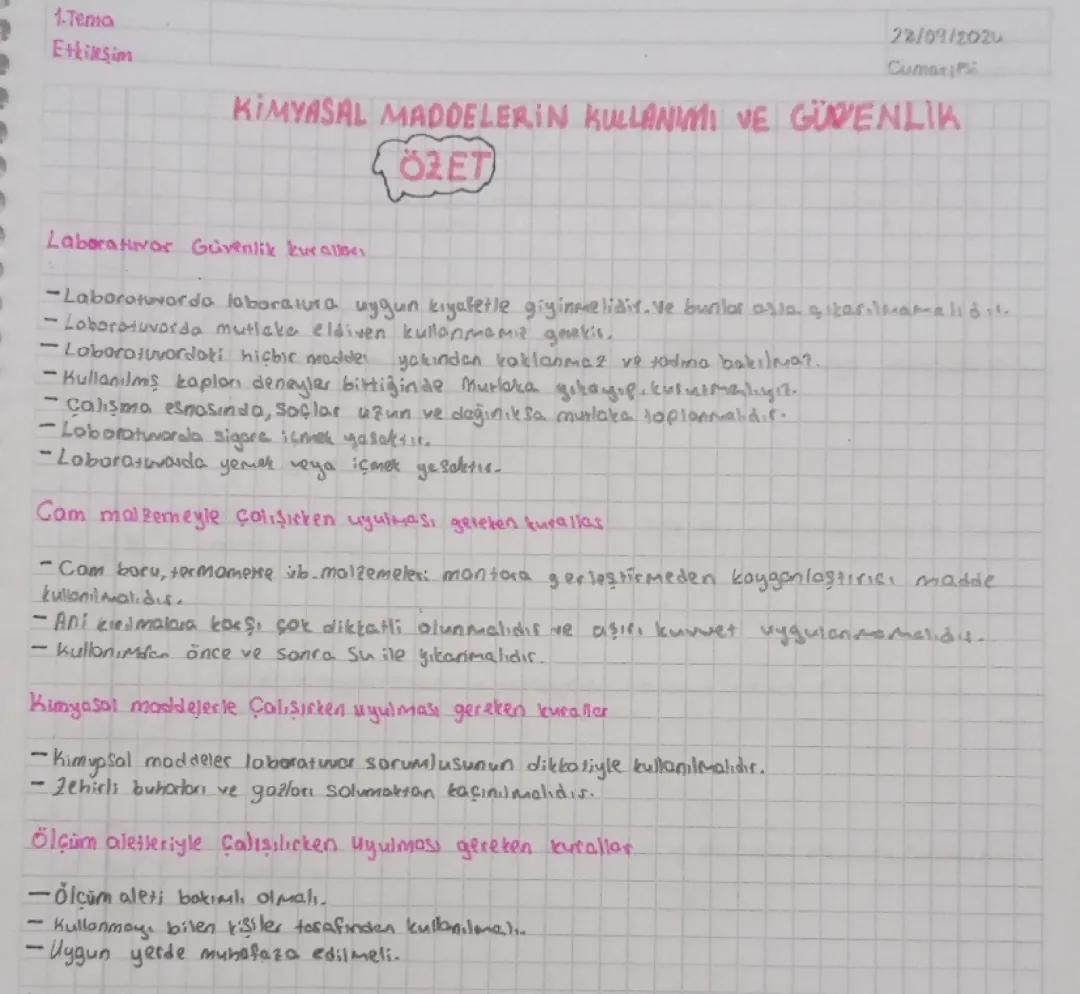 1.Tema
Etkileşim
28/09/2024
Cumartesi
KİMYASAL MADDELERİN KULLANIMI VE GÜVENLİK
ÖZET
Laboratuvar Güvenlik kuralları
- Laboratuvarda laboratura uygun kıyafetle giyinmelidir. Ve bunlar asla çıkarılmamalıdır.
- Laboratuvarda mutlaka eldiven kullanmamız gerekir.
- Laboratuvardaki hiçbir madde yakından koklanmaz ve tadına bakılmaz.
- Kullanılmış kapları deneyler bittiğinde Mutlaka yıkayıp, kurutmalıyız.
- Çalışma esnasında, Saçlar uzun ve dağınıksa mutlaka toplanmalıdır.
- Laboratuvarda sigara içmek yasaktır.
- Laboratuvarda yemek veya içmek yasaktır.
Cam malzemeyle çalışırken uyulması gereken kurallar
- Cam boru, termometre vb. malzemeleri mantara yerleştirmeden kayganlaştırıcı madde
kullanılmalıdır.
- Ani kırılmalara karşı çok dikkatli olunmalıdır ve aşırı kuvvet uygulanmamalıdır.
- Kullanımdan önce ve sonra Su ile yıkanmalıdır.
Kimyasal maddelerle Çalışırken uyulması gereken kurallar
- Kimyasal maddeler laboratuvar sorumlusunun dikkatiyle kullanılmalıdır.
- Zehirli buharları ve gazları solumaktan kaçınılmalıdır.
Ölçüm aletleriyle Çalışılırken Uyulması gereken kurallar
- Ölçüm aleti bakımlı olmalı.
- Kullanmayı bilen kişiler tarafından kullanılmalı.
- Uygun yerde muhafaza edilmeli.